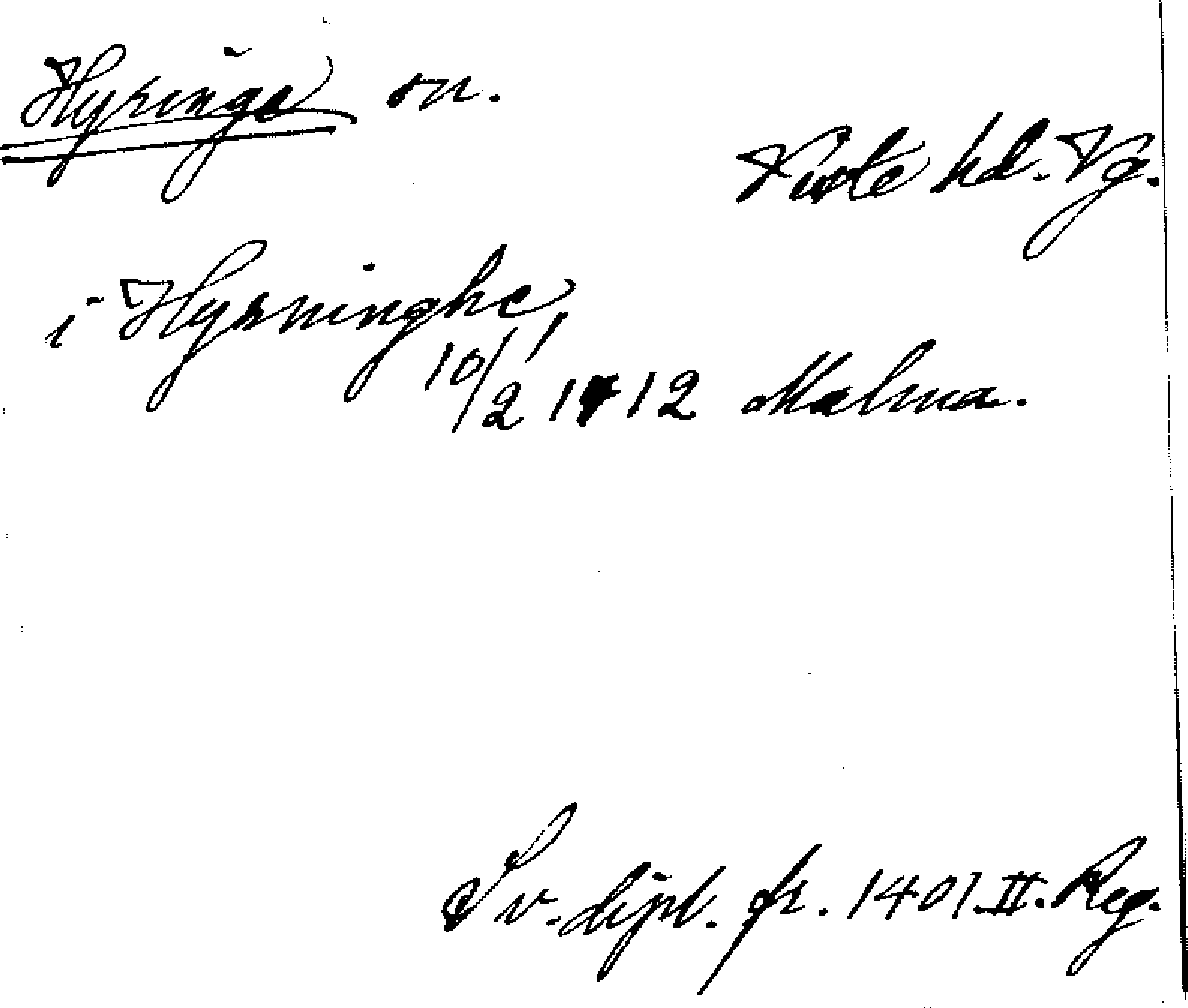 Hyringa sn.
Viste hd. Vg.
i Hyrninghe,
10/2 1412 Malma.
Sv. dipl. fr. 1401. II. Reg.